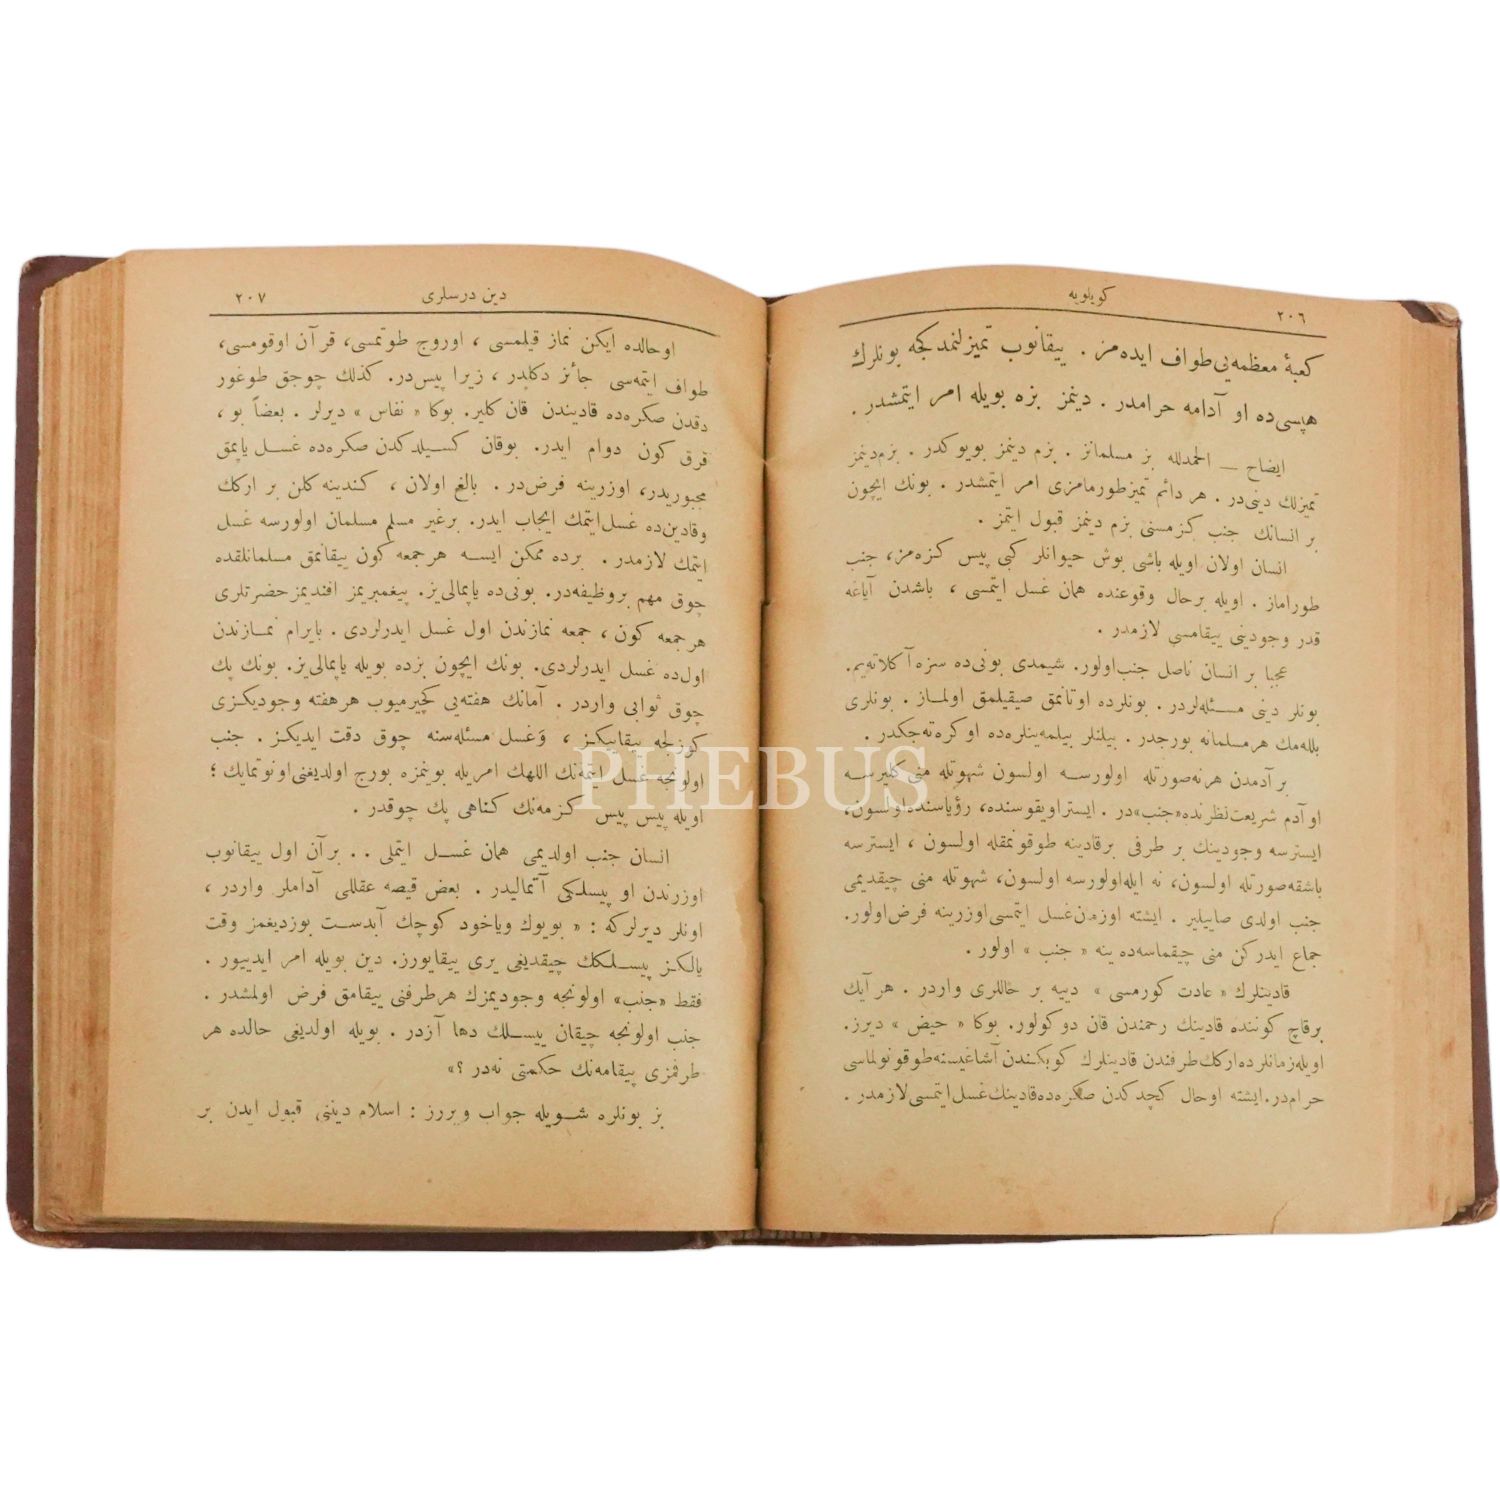 ٢٠٦
كويلويه
كعبهٔ معظمه‌يى طواف ايده‌مز . ييقانوب تميزلنمدكجه بونلرك
هپسى‌ده او آدامه حرامدر . دينمز بزه بويله امر ايتمشدر .
ايضاح — الحمدلله بز مسلمانز . بزم دينمز بويوكدر . بزم‌دينمز
تميزلك دينى‌در . هر دائم تميزطورمامزى امر ايتمشدر . بونك ايچون
بر انسانك جنب كزمسنى بزم دينمز قبول ايتمز .
انسان اولان اويله باشى بوش حيوانلر كبى پيس كزه‌مز، جنب
طوراماز . اويله برحال وقوعنده همان غسل ايتمسى ، باشدن آياغه
قدر وجودينى ييقامسى لازمدر .
عجبا بر انسان ناصل جنب‌اولور. شيمدى بونى‌ده سزه آكلاته‌يم.
بونلر دينى مسئله‌لردر . بونلرده اوتانمق صيقيلمق اولماز . بونلرى
بلله‌مك هرمسلمانه بورجدر . بيلنلر بيلمه‌ينلره‌ده اوكره‌ته‌جكدر .
بر آدمدن هرنه‌صورتله اولورسه اولسون شهوتله منى كليرسه
او آدم شريعت‌نظرنده«جنب»در . ايستراويقوسنده، رؤياسنده‌اولسون،
ايسترسه وجودينك بر طرفى برقادينه طوقونمقله اولسون ، ايسترسه
باشقه‌صورتله اولسون، نه ايله‌اولورسه اولسون، شهوتله منى چيقديمى
جنب اولدى صاييلير . ايشته اوزمن‌غسل ايتمسى‌اوزرينه فرض‌اولور.
جماع ايدركن منى چيقماسه‌ده ينه « جنب » اولور .
قادينلرك « عادت كورمسى » دييه بر حاللرى واردر . هر آيك
برقاچ كوننده قادينك رحمندن قان دوكولور. بوكا « حيض » ديرز.
اويله‌زمانلرده‌اركك‌طرفندن قادينلرك كوبكندن آشاغيسنه‌طوقونولماسى
حرام‌در. ايشته اوحال كچدكدن صكره‌ده‌قادينك‌غسل‌ايتمسى‌لازمدر .
دين درسلرى
٢٠٧
اوحالده ايكن نماز قيلمسى ، اوروج طوتمسى، قرآن اوقومسى،
طواف ايتمه‌سى جائز دكلدر ، زيرا پيس‌در. كذلك چوجق طوغور
دقدن صكره‌ده قاديندن قان كلير. بوكا « نفاس » ديرلر . بعضاً بو ،
قرق كون دوام ايدر. بوقان كسيلدكدن صكره‌ده غسل ياپمق
مجبوريدر، اوزرينه فرض‌در . بالغ اولان ، كندينه كلن بر اركك
وقادين‌ده غسل‌ايتمك ايجاب ايدر. برغير مسلم مسلمان اولورسه غسل
ايتمك لازمدر . برده ممكن ايسه هرجمعه كون ييقانمق مسلمانلقده
چوق مهم بروظيفه‌در. بونى‌ده ياپمالى‌يز. پيغمبريمز افنديمزحضرتلرى
هرجمعه كون ، جمعه نمازندن اول غسل ايدرلردى . بايرام نمازندن
اول‌ده غسل ايدرلردى. بونك ايچون بزده بويله ياپمالى‌يز. بونك پك
چوق ثوابى واردر . آمانك هفته‌يى كچيرميوب هرهفته وجوديكزى
كوزلجه ييقاييكز ، وغسل مسئله‌سنه چوق دقت ايديكز . جنب
اولونجه غسل ايتمه‌نك اللهك امريله بوينمزه بورج اولديغنى‌اونوتمايك ؛
اويله پيس پيس كزمه‌نك كناهى پك چوقدر .
انسان جنب اولديمى همان غسل ايتملى . . برآن اول ييقانوب
اوزرندن او پيسلكى آتماليدر . بعض قيصه عقللى آداملر واردر ،
اونلر ديرلركه : « بويوك وياخود كوچك آبدست بوزديغمز وقت
يالكز پيسلكك چيقديغى يرى ييقايورز. دين بويله امر ايدييور .
فقط «جنب» اولونجه وجوديمزك هرطرفنى ييقامق فرض اولمشدر .
جنب اولونجه چيقان پيسلك دها آزدر . بويله اولديغى حالده هر
طرفمزى ييقامه‌نك حكمتى نه‌در ؟»
بز بونلره شويله جواب ويررز : اسلام دينى قبول ايدن بر
PHEBUS